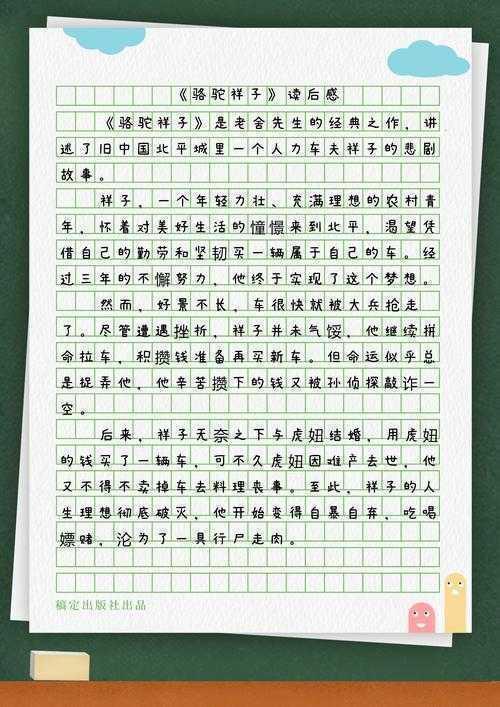 《骆驼祥子》读后感
《骆驼祥子》是老舍先生的经典之作，讲
述了旧中国北平城里一个人力车夫祥子的悲剧
故事。
祥子，一个年轻力壮、充满理想的农村青
年，怀着对美好生活的憧憬来到北平，渴望凭
借自己的勤劳和坚韧买一辆属于自己的车。经
过三年的不懈努力，他终于实现了这个梦想。
然而，好景不长，车很快就被大兵抢走
了。尽管遭遇挫折，祥子并未气馁，他继续拼
命拉车，积攒钱准备再买新车。但命运似乎总
是捉弄他，他辛苦攒下的钱又被孙侦探敲诈一
空。
后来，祥子无奈之下与虎妞结婚，用虎妞
的钱买了一辆车，可不久虎妞因难产去世，他
又不得不卖掉车去料理丧事。至此，祥子的人
生理想彻底破灭，他开始变得自暴自弃，吃喝
嫖赌，沦为了一具行尸走肉。
稿定出版社出品